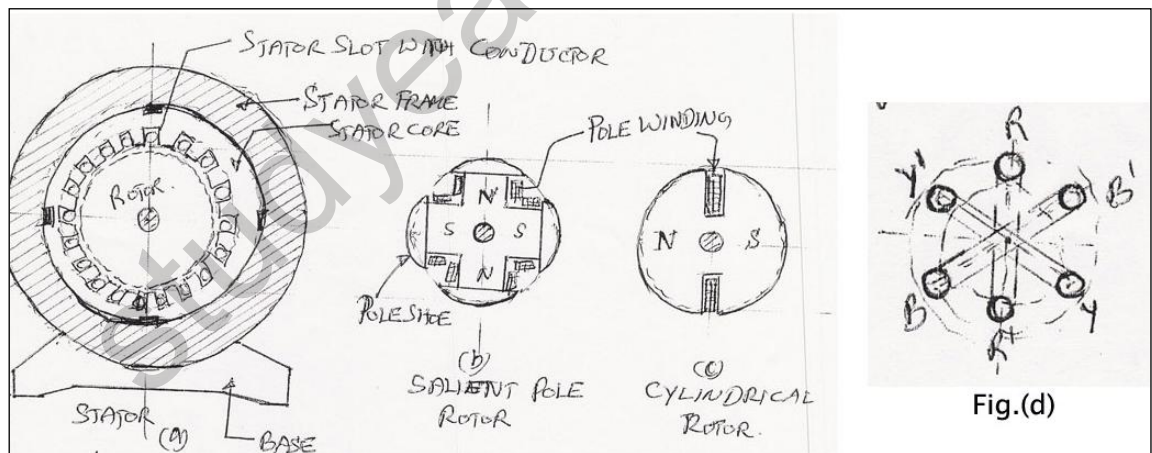 STATOR SLOT WITH CONDUCTOR
STATOR FRAME
STATOR CORE
ROTOR.
STATOR
(a)
BASE
POLE WINDING
N
S S
N
POLE SHOE
(b)
SALIENT POLE
ROTOR
N S
(c)
CYLINDRICAL
ROTOR.
R
Y' B'
B Y
R'
Fig.(d)
studyea